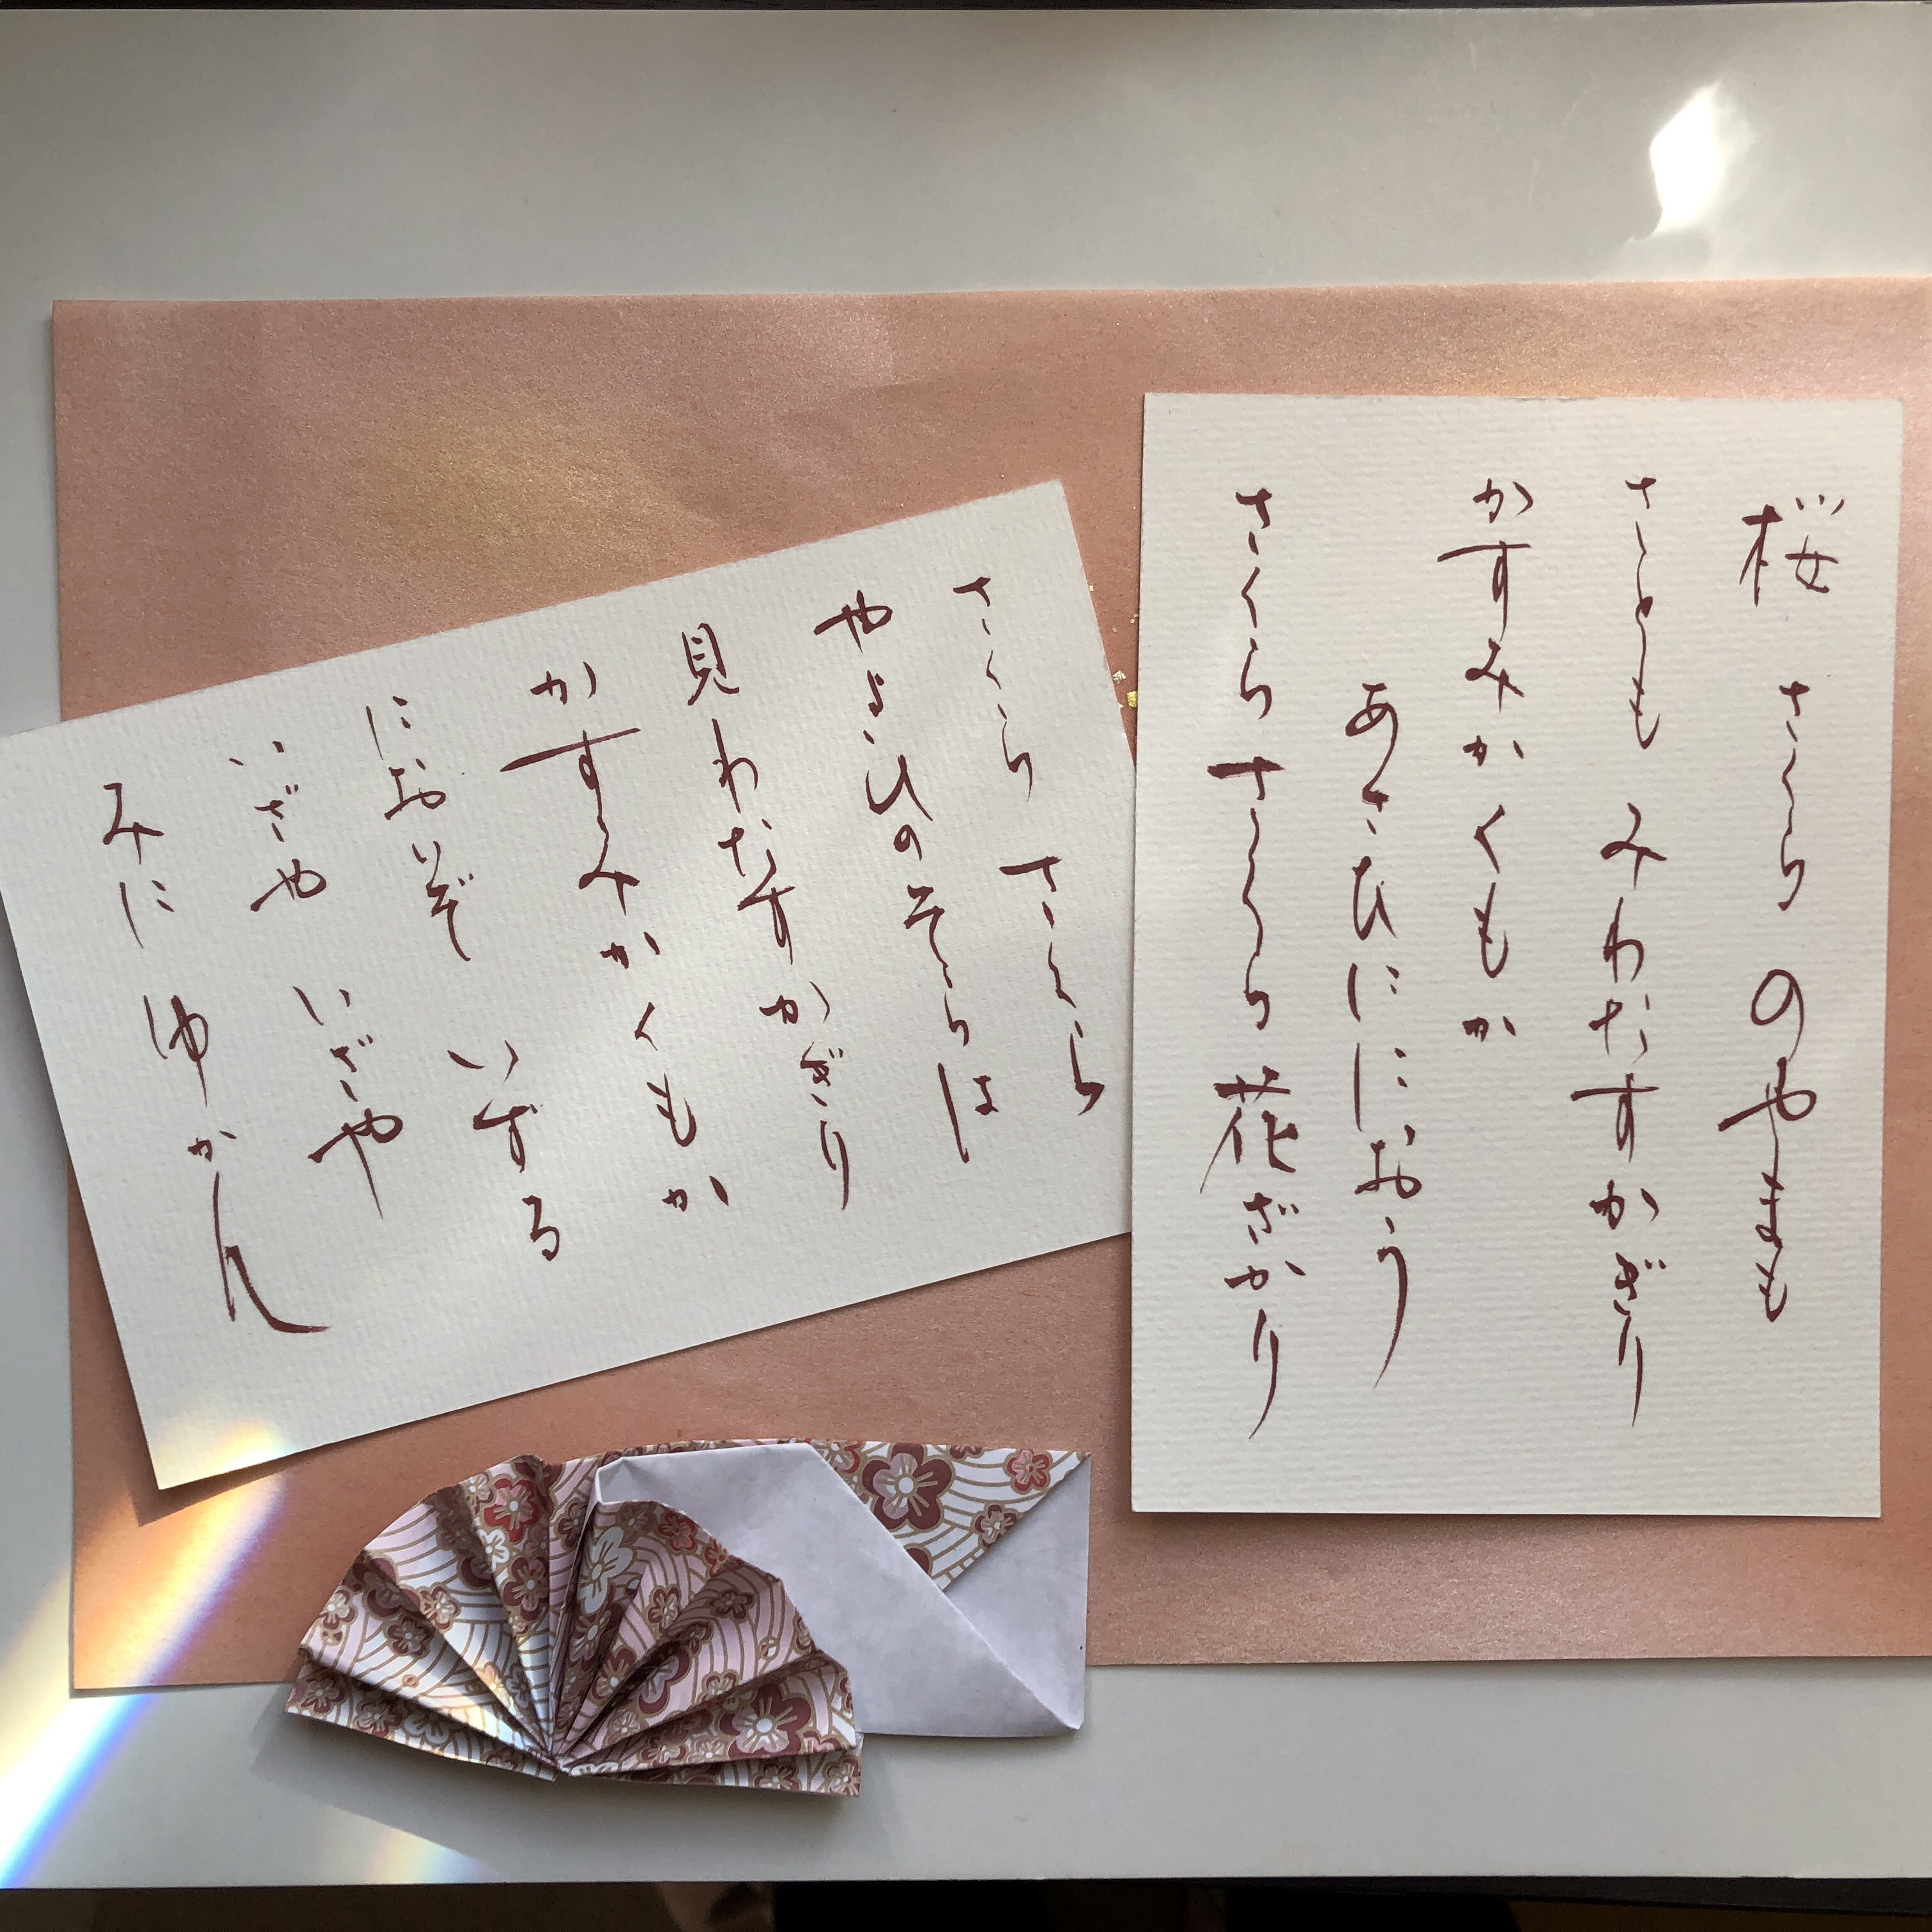 桜 さくら のやまも
さとも みわたすかぎり
かすみかくもか
あさひににおう
さくら さくら 花ざかり
さくら さくら
やよひのそらは
見わたすかぎり
かすみかくもか
におひぞ いずる
いざや いざや
みに ゆかん